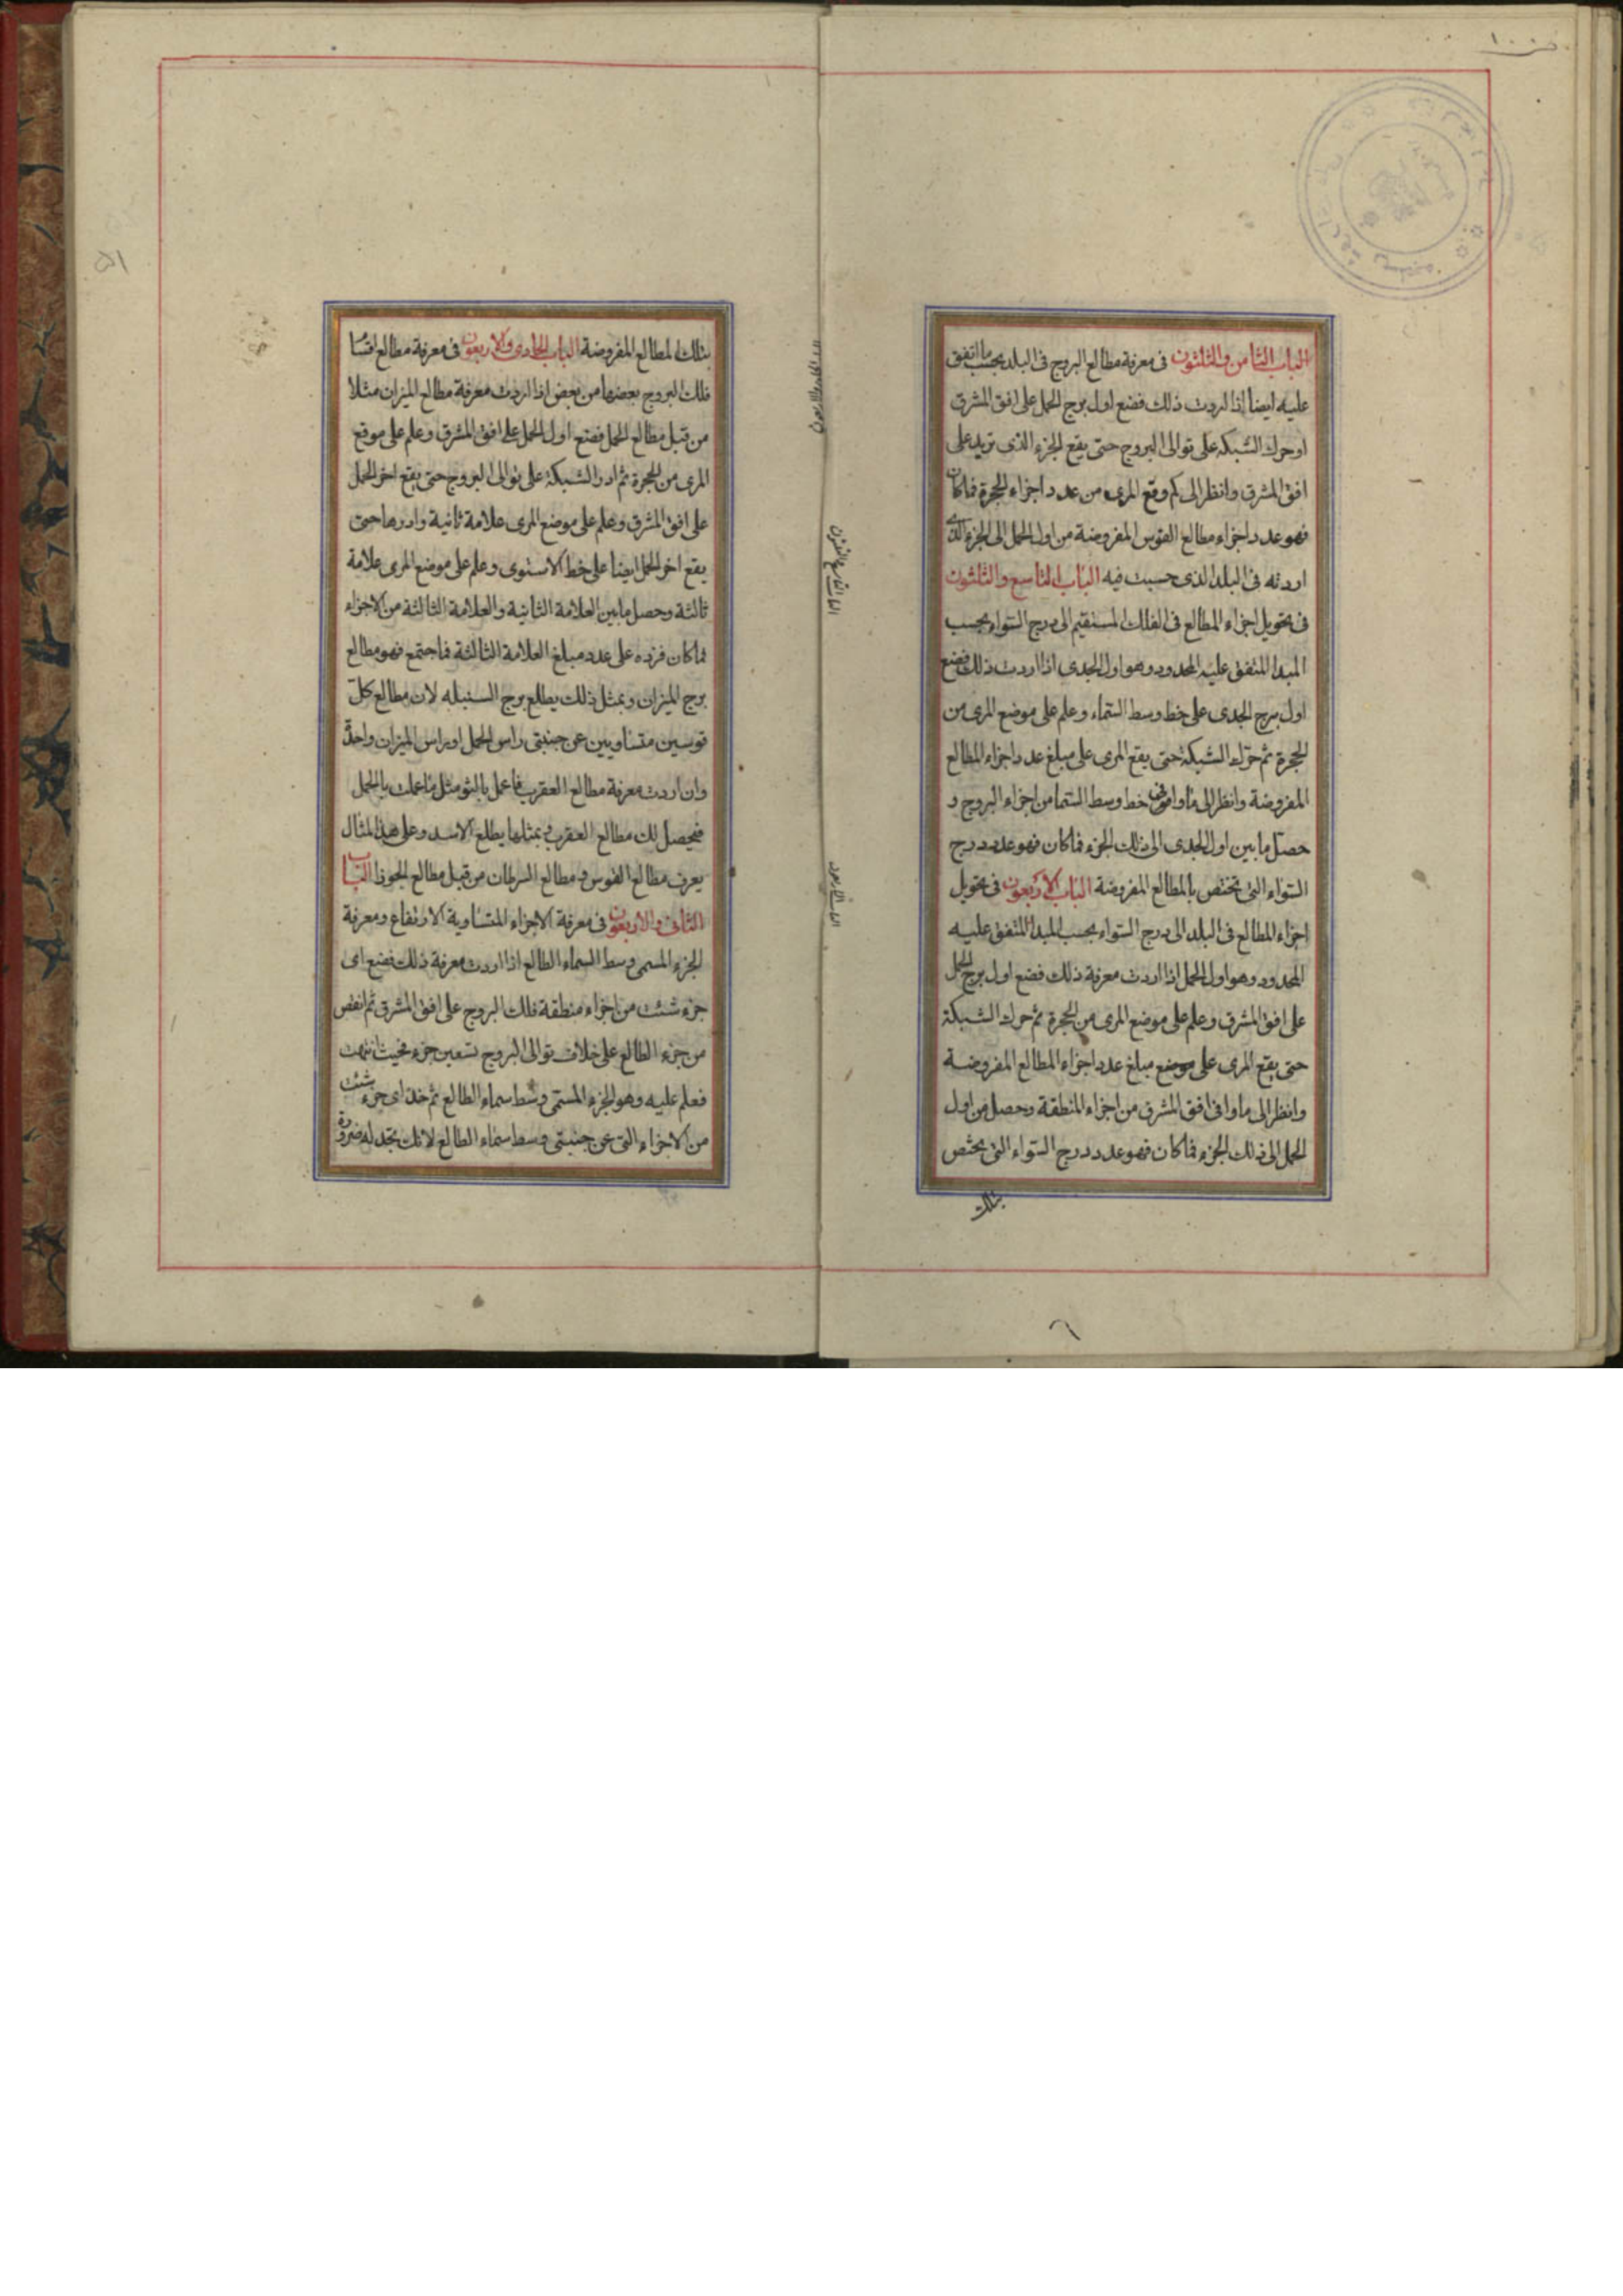 الباب الثامن والثلثون فى معرفة مطالع البروج فى البلد بحسب ما اتفق
عليه ايضا اذا اردت ذلك فضع اول برج الحمل على افق المشرق
او حرك الشبكة على توالى البروج حتى يقع الجزء الذى تريد على
افق المشرق وانظر الى كم وقع المرى من عدد اجزاء الحجرة فما كان
فهو عدد اجزاء مطالع القوس المفروضة من اول الحمل الى الجزء الذى
اردته فى البلد الذى حسبت فيه الباب التاسع والثلثون
فى تحويل اجزاء المطالع فى الفلك المستقيم الى درج السواء بحسب
المبدا المتفق عليه المحدود وهو اول الجدى اذا اردت ذلك فضع
اول برج الجدى على خط وسط السماء وعلم على موضع المرى من
الحجرة ثم حرك الشبكة حتى يقع المرى على مبلغ عدد اجزاء المطالع
المفروضة وانظر الى ما وافى خط وسط السما من اجزاء البروج و
حصل ما بين اول الجدى الى ذلك الجزء فما كان فهو عدد درج
السواء التى تختص بالمطالع المفروضة الباب الاربعون فى تحويل
اجزاء المطالع فى البلد الى درج السواء بحسب المبدا المتفق عليه
المحدود وهو اول الحمل اذا اردت معرفة ذلك فضع اول برج الحمل
على افق المشرق وعلم على موضع المرى من الحجرة ثم حرك الشبكة
حتى يقع المرى على موضع مبلغ عدد اجزاء المطالع المفروضة
وانظر الى ما وافى افق المشرق من اجزاء المنطقة وحصل من اول
الحمل الى ذلك الجزء فما كان فهو عدد درج السواء التى يختص
بتلك
بتلك المطالع المفروضة الباب الحادى والاربعون فى معرفة مطالع اقسام
فلك البروج بعضها من بعض اذا اردت معرفة مطالع الميزان مثلا
من قبل مطالع الحمل فضع اول الحمل على افق المشرق وعلم على موقع
المرى من الحجرة ثم ادر الشبكة على توالى البروج حتى يقع اخر الحمل
على افق المشرق وعلم على موضع المرى علامة ثانية وادرها حتى
يقع اخر الحمل ايضا على خط الاستوى وعلم على موضع المرى علامة
ثالثة وحصل ما بين العلامة الثانية والعلامة الثالثة من الاجزاء
فما كان فزده على عدد مبلغ العلامة الثالثة فما اجتمع فهو مطالع
برج الميزان وبمثل ذلك يطلع برج السنبله لان مطالع كل
قوسين متساويين عن جنبتى راس الحمل او راس الميزان واحدة
وان اردت معرفة مطالع العقرب فاعمل بالثور مثل ما عملت بالحمل
فيحصل لك مطالع العقرب وبمثلها يطلع الاسد وعلى هذا المثال
يعرف مطالع القوس ومطالع السرطان من قبل مطالع الجوزا الباب
الثانى والاربعون فى معرفة الاجزاء المتساوية الارتفاع ومعرفة
الجزء المسمى وسط السماء الطالع اذا اردت معرفة ذلك فضع اى
جزء شئت من اجزاء منطقة فلك البروج على افق المشرق ثم انقص
من جزء الطالع على خلاف توالى البروج تسعين جزء فحيث انتهت
فعلم عليه وهو الجزء المسمى وسط سماء الطالع ثم خذ اى جزء شئت
من الاجزاء التى عن جنبتى وسط سماء الطالع لانك تجد له ضرورة
٥١